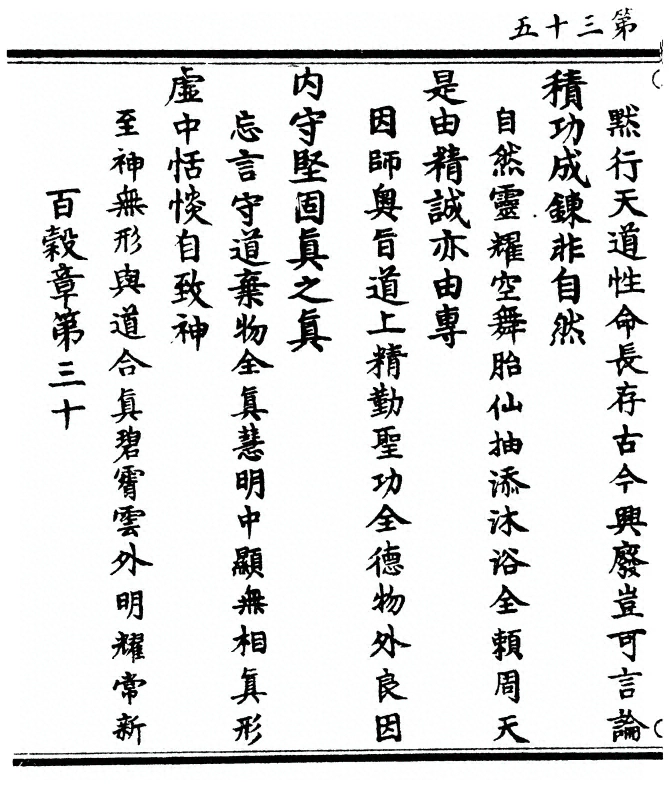 第三十五
默行天道性命長存古今興廢豈可言論
積功成鍊非自然
自然靈耀空舞胎仙抽添沐浴全賴周天
是由精誠亦由專
因師奧旨道上精勤聖功全德物外良因
内守堅固真之真
忘言守道棄物全真慧明中顯無相真形
虛中恬惔自致神
至神無形與道合真碧霄雲外明耀常新
百穀章第三十